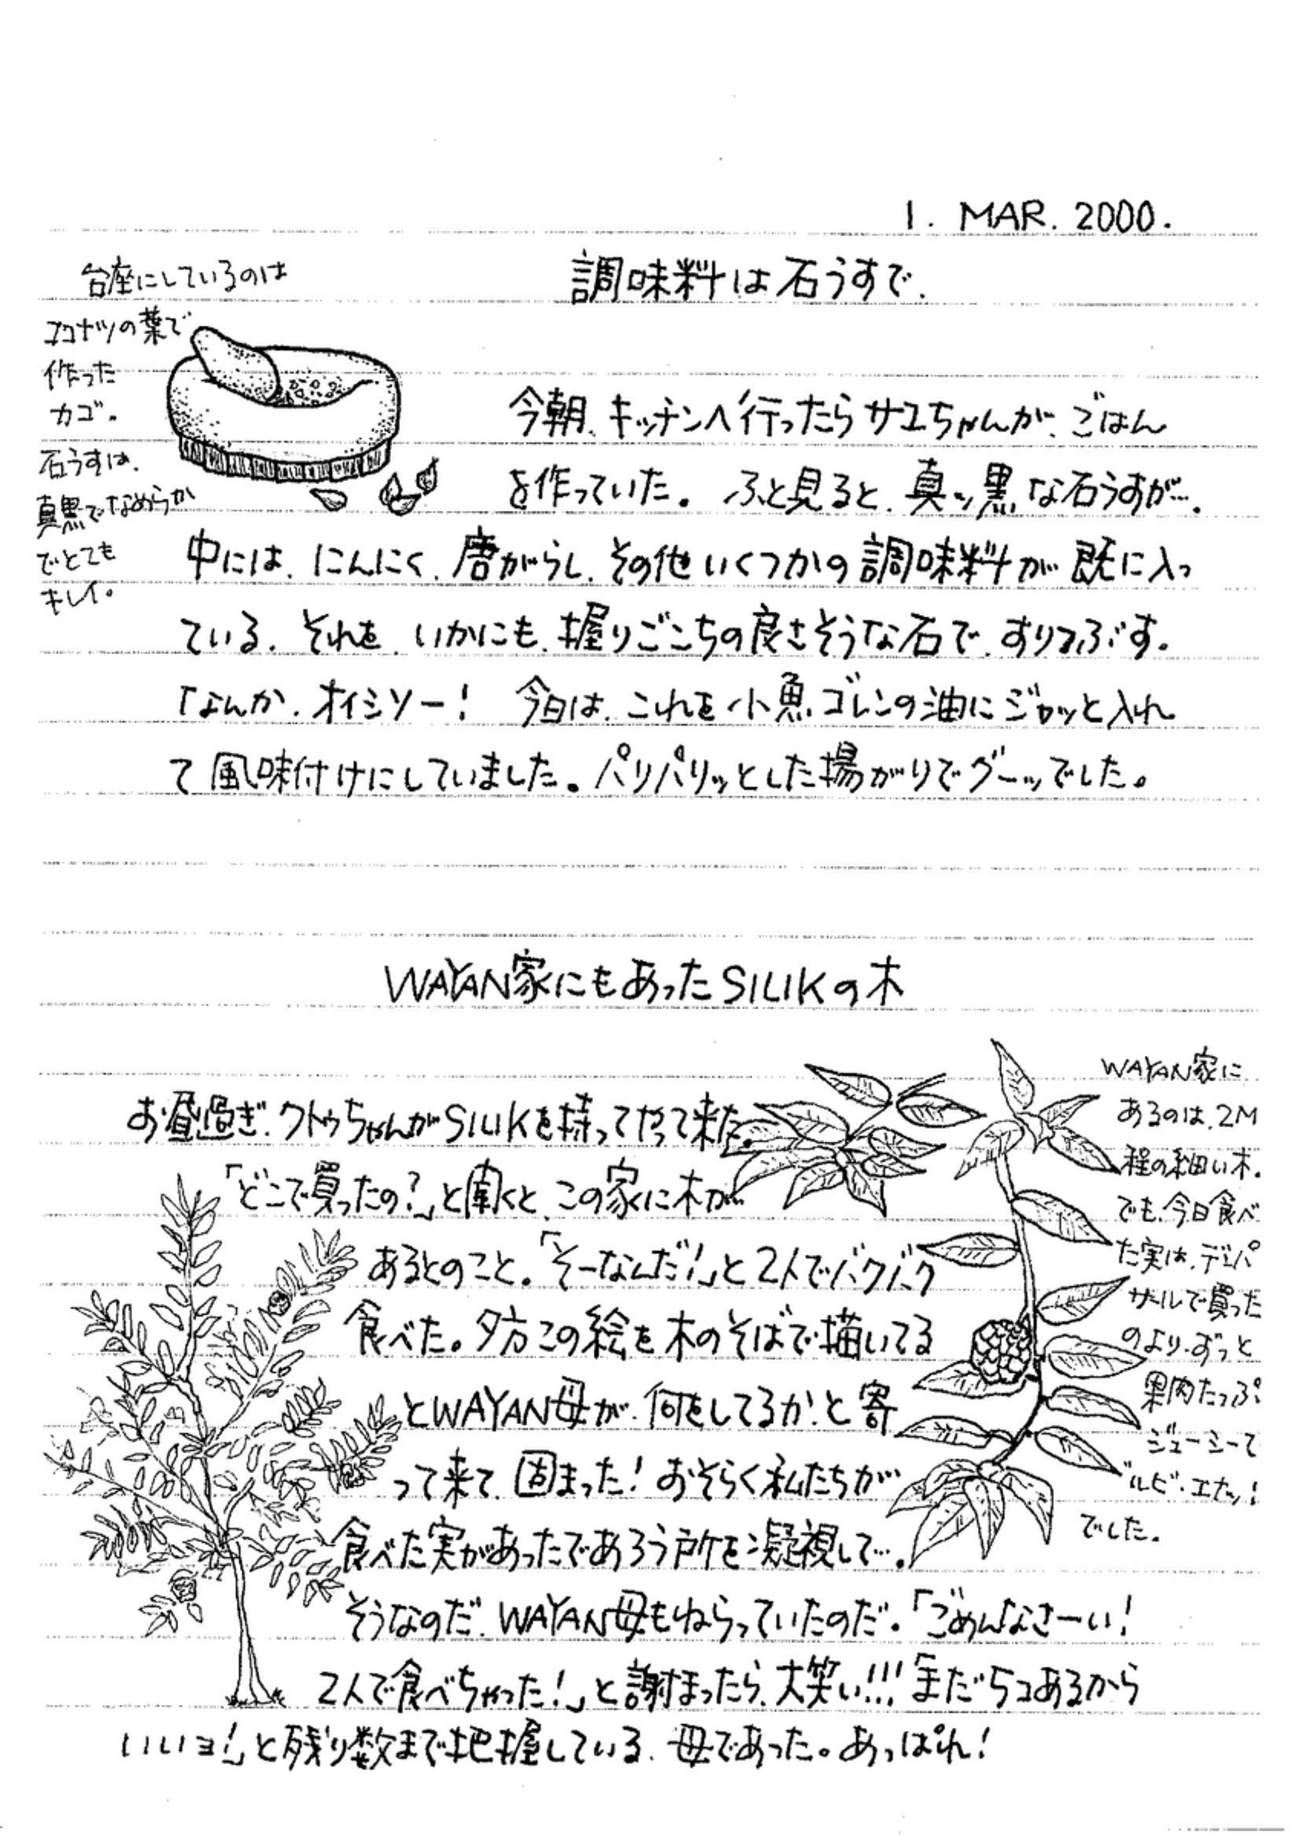 1. MAR. 2000.
調味料は石うすで.
台座にしているのは
ココナツの葉で
作った
カゴ。
石うすは、
真黒でなめらか
でとても
キレイ。
今朝、キッチンへ行ったらサユちゃんが、ごはん
を作っていた。ふと見ると、真ッ黒な石うすが…。
中には、にんにく、唐がらし、その他いくつかの調味料が既に入っ
ている。それを、いかにも、握りごこちの良さそうな石で、すりつぶす。
「なんか、オイシソー！ 今日は、これを小魚ゴレンの油にジャッと入れ
て風味付けにしていました。パリパリッとした揚がりでグーッでした。
WAYAN家にもあったSILIKの木
お昼過ぎ、クトゥちゃんがSILIKを持ってやって来た。
「どこで買ったの？」と聞くと、この家に木が
あるとのこと。「そーなんだ！」と2人でバクバク
食べた。夕方この絵を木のそばで描いてる
とWAYAN母が、何をしてるか、と寄
って来て、固まった！おそらく私たちが
食べた実があったであろう所を凝視して…。
そうなのだ、WAYAN母もねらっていたのだ。「ごめんなさーい！
2人で食べちゃった！」と謝まったら、大笑い!!!「まだ5コあるから
いいョ！」と残り数まで把握している、母であった。あっぱれ！
WAYAN家に
あるのは、2M
程の細い木。
でも、今日食べ
た実は、デンパ
サールで買った
のより、ずっと
果肉たっぷ
ジューシーで
ルビ・エナッ！
でした。